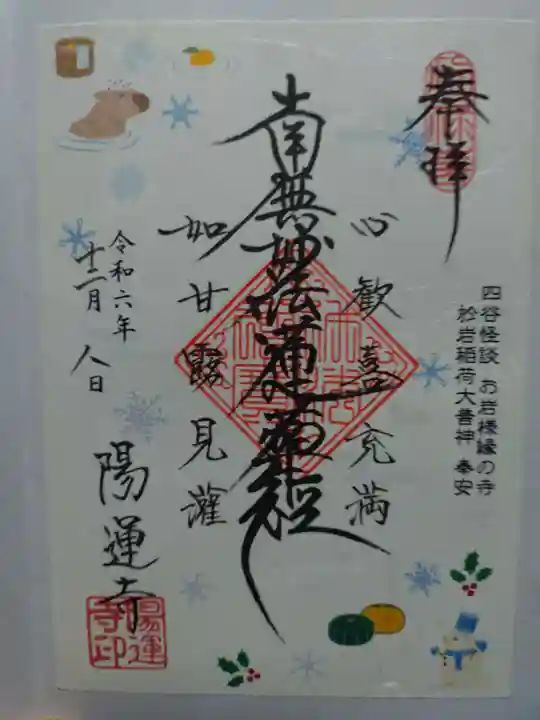 奉拝
四谷怪談 お岩様縁の寺
妙岩稲荷大善神 奉安
心歓喜充満
南無妙法蓮華経
如甘露見灌
令和六年
十二月 八日
陽運寺
陽運
寺印